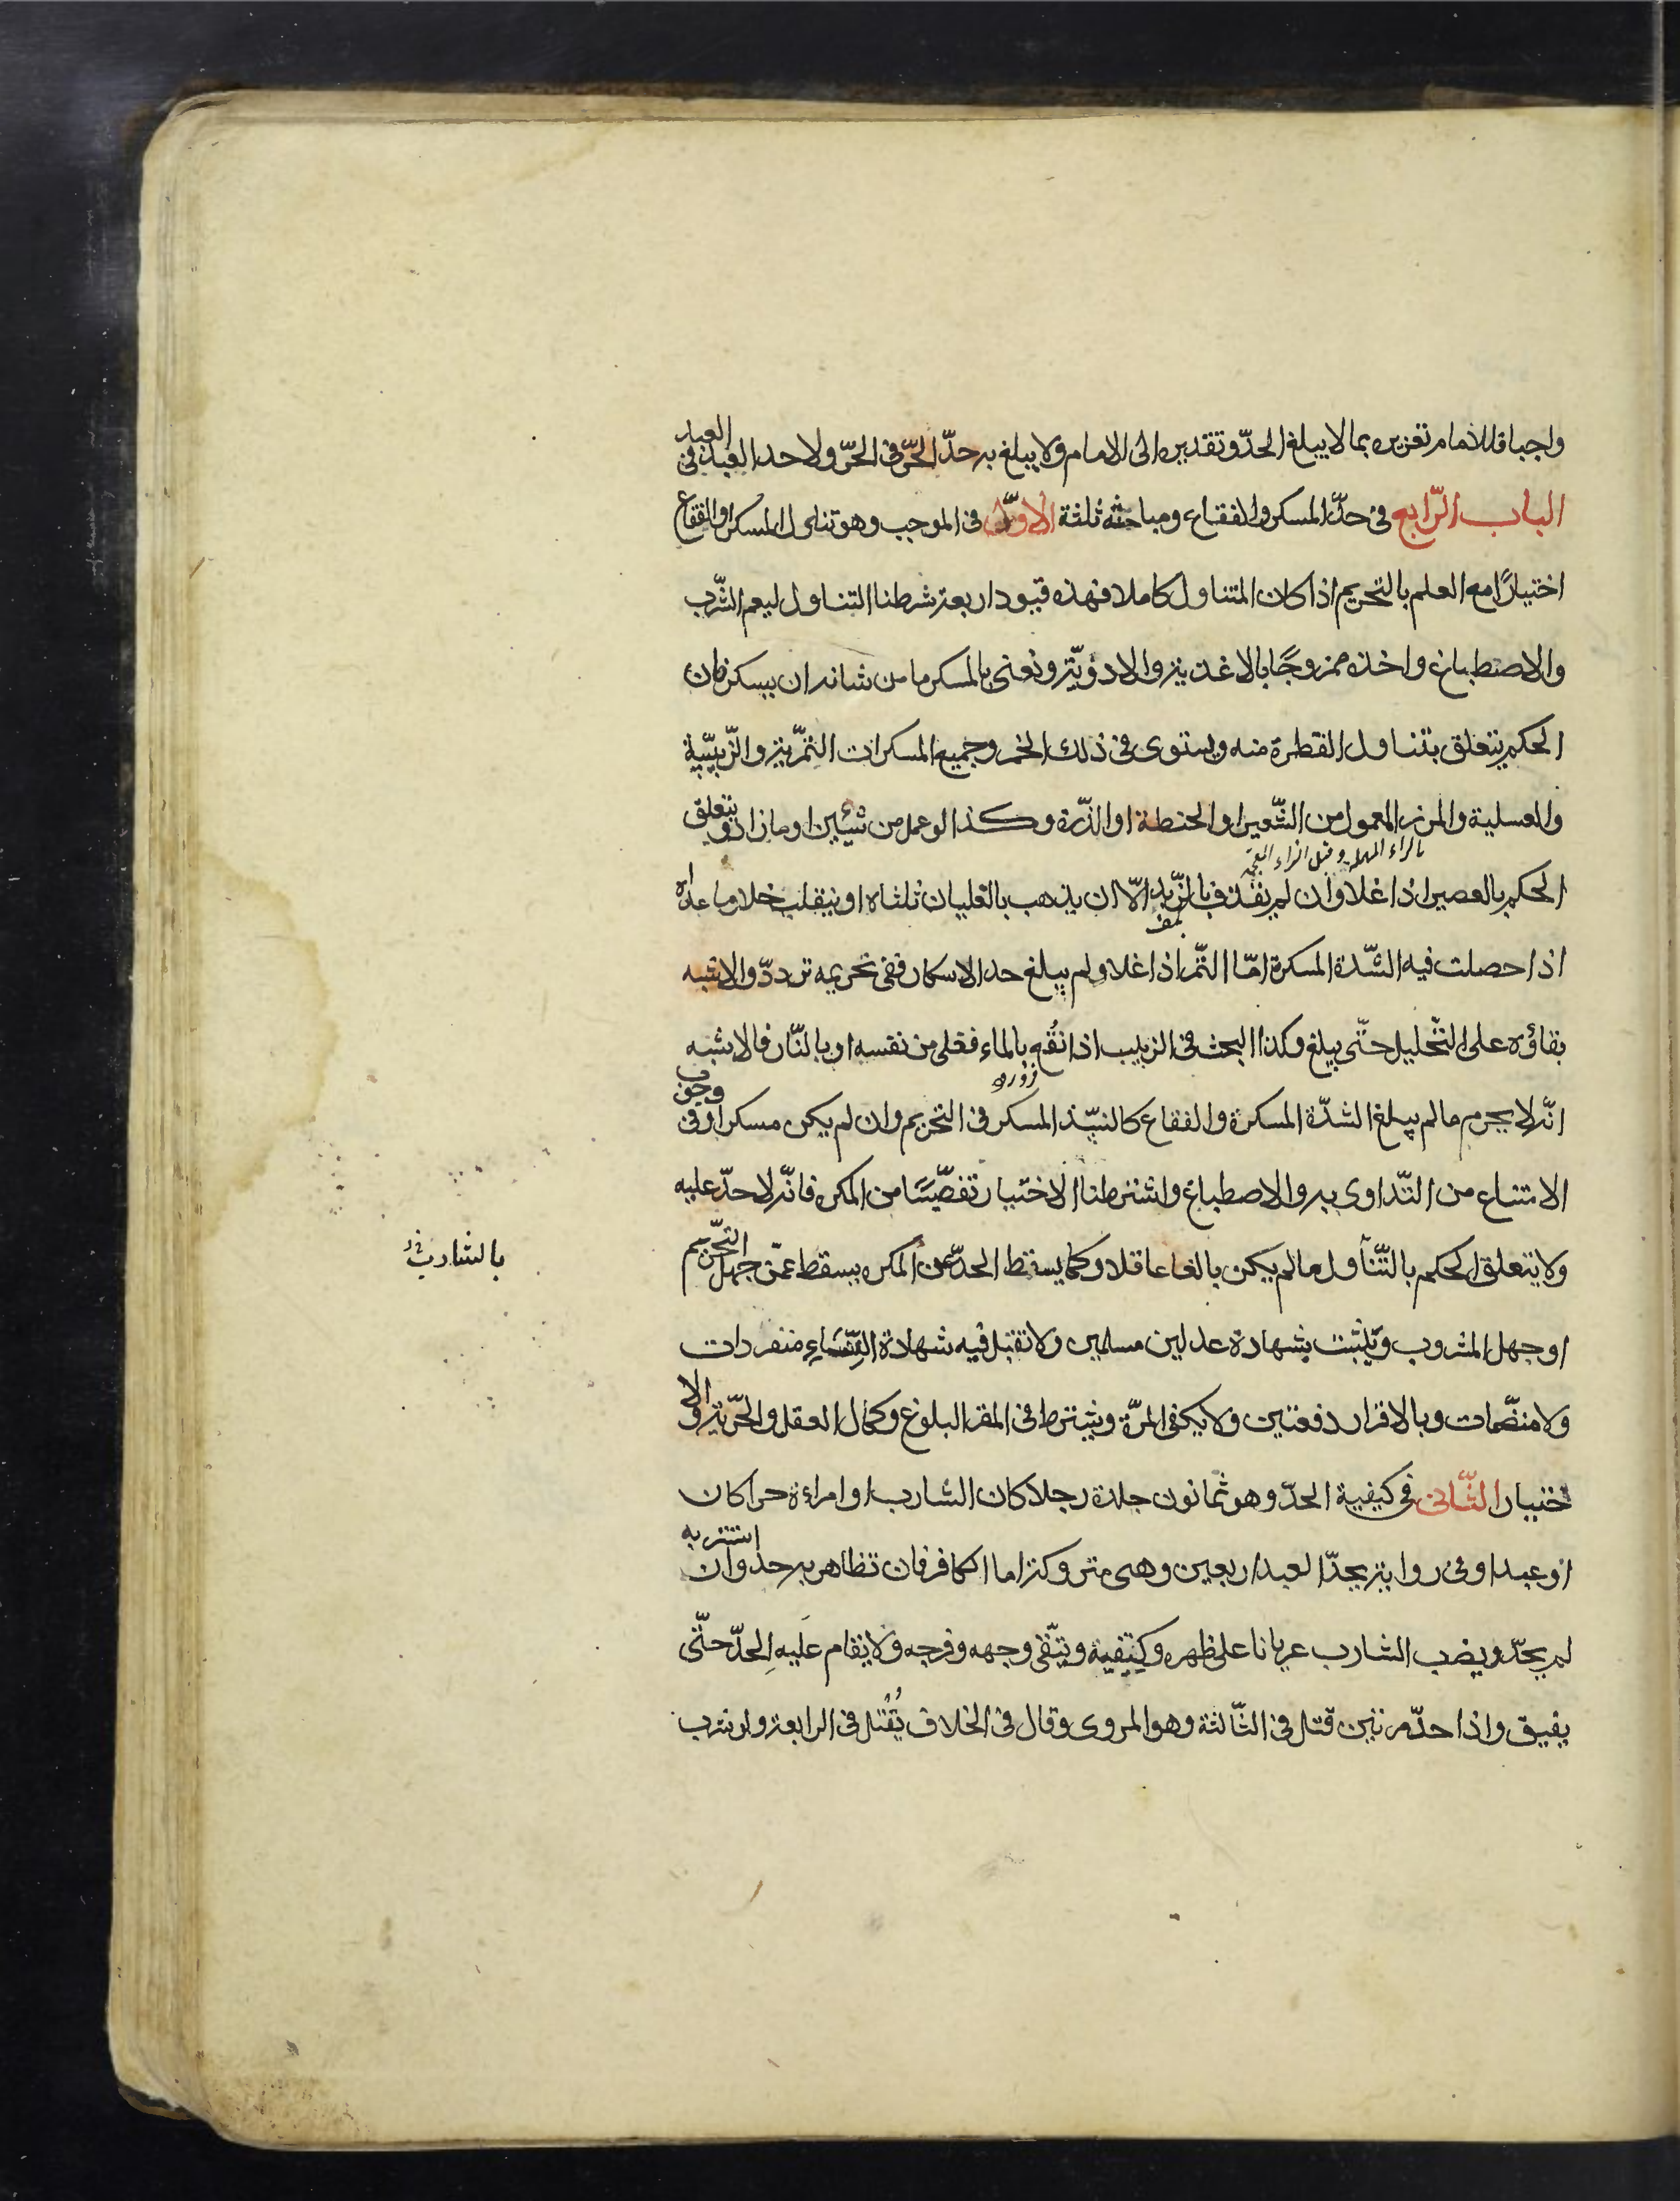 واجبا فللامام تعزيره بما لا يبلغ الحدّ وتقديره الى الامام ولا يبلغ به حدّ الحرّ فى الحرّ ولا حد العبد فى العبد
الباب الرّابع فى حدّ المسكر والفقاع ومباحثه ثلثة الاوّل فى الموجب وهو تناول المسكر او الفقاع
اختيارًا مع العلم بالتحريم اذا كان المتناول كاملا فهذه قيود اربعة شرطنا التناول ليعم الشّرب
والاصطباغ واخذه ممزوجًا بالاغذية والادوّية ونعنى بالمسكر ما من شانه ان يسكر فان
الحكم يتعلق بتناول القطرة منه ويستوى فى ذلك الخمر وجميع المسكرات التمّرية والزّبيبّية
والعسلية والمزر المعمول من الشّعير او الحنطة او الذّرة وكذا لو عمل من شيئين او ما زاد ويتعلق
بالراء المهملة وقيل الزاء المعجمة
الحكم بالعصير اذا غلا وان لم يقذف بالزّبد الّا ان يذهب بالغليان ثلثاه او ينقلب خلا وما عداه
اذا حصلت فيه الشّدة المسكرة امّا التّمر اذا غلا ولم يبلغ حد الاسكار ففى تحريمه تردّد والاشبه
بقاؤه على التّحليل حتّى يبلغ وكذا البحث فى الزبيب اذا نقُع بالماء فغلى من نفسه او بالنّار فالاشبه
انّه لا يحرم ما لم يبلغ الشدّة المسكرة والفقاع كالنبيّذ المسكر فى التحريم وان لم يكن مسكرا وفى وجوب
الامتناع من التّداوى به والاصطباغ واشترطنا الاختيار تفصّيًا من المكره فانّه لا حدّ عليه
ولا يتعلق الحكم بالتّناول ما لم يكن بالغا عاقلا وكما يسقط الحدّ عن المكره يسقط عمّن جهل التّحريم
بالشارب
او جهل المشروب ويثبت بشهادة عدلين مسلمين ولا تقبل فيه شهادة النّساءِ منفردات
ولا منضّمات وبالاقرار دفعتين ولا يكفى المرّة ويشترط فى المقر البلوغ وكمال العقل والحرّية والا
ختيار الثّانى فى كيفية الحدّ وهو ثمانون جلدة رجلا كان الشارب او امراءة حرا كان
او عبدا وفى رواية يحدّ العبد اربعين وهى متروكة اما الكافر فان تظاهر به حد وان استتر به
لم يحدّ ويضرب الشارب عريانا على ظهره وكتفيه ويتّقى وجهه وفرجه ولا يقام عليه الحدّ حتّى
يفيق واذا حدّ مرتين قتل فى الثّالثة وهو المروى وقال فى الخلاف يُقتل فى الرابعة ولو شرب